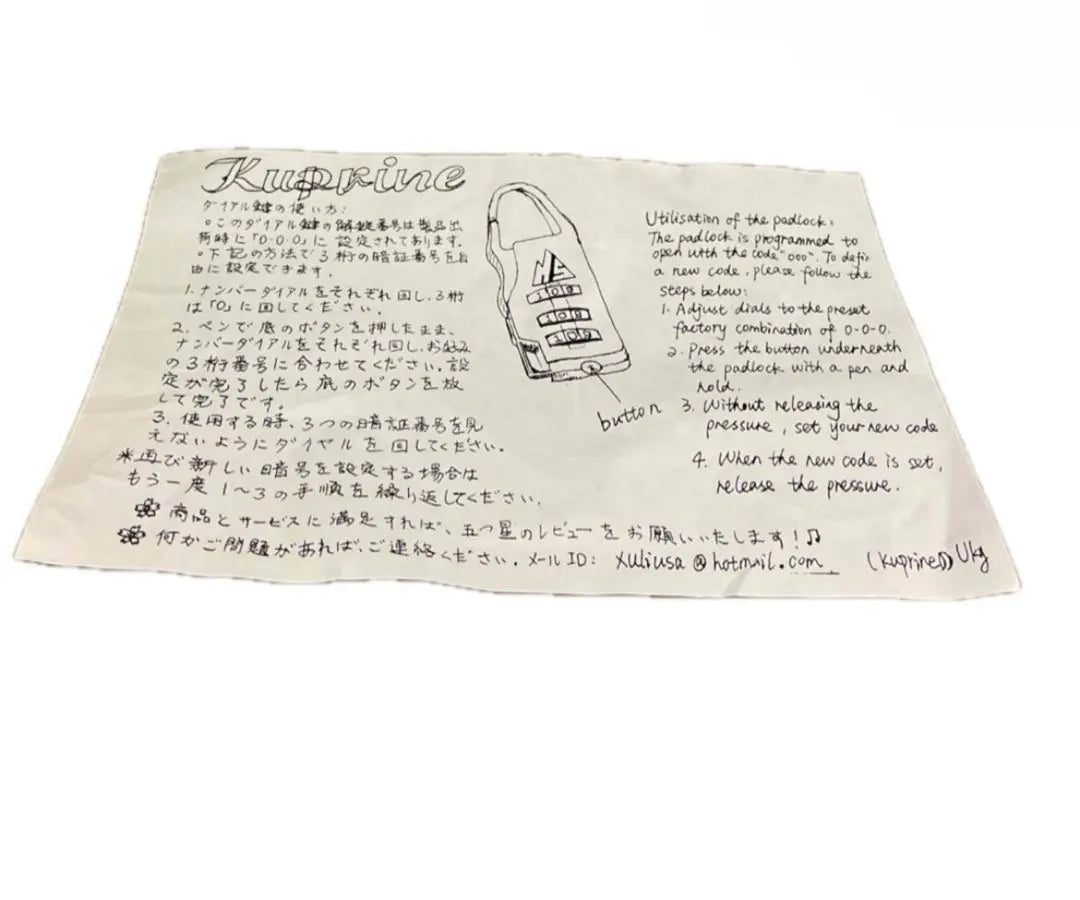 Kuprine
ダイアル鍵の使い方:
○このダイアル鍵の解錠番号は製品出
荷時に「0-0-0」に設定されております。
○下記の方法で3桁の暗証番号を自
由に設定できます.
1.ナンバーダイアルをそれぞれ回し、3桁
は「0」に回してください.
2. ペンで底のボタンを押したまま、
ナンバーダイアルをそれぞれ回し、お好み
の3桁番号に合わせてください.設
定が完了したら底のボタンを放
して完了です。
3. 使用する時、3つの暗証番号を見
えないようにダイヤルを回してください.
※再び新しい暗号を設定する場合は
もう一度1~3の手順を繰り返してください.
商品とサービスに満足すれば、五つ星のレビューをお願いいたします!♫
何かご問題があれば、ご連絡ください. メールID: xuliusa@hotmail.com (Kuprine)
NE
108
108
109
button
Utilisation of the padlock:
The padlock is programmed to
open with the code "000". To defin
a new code, please follow the
steps below:
1. Adjust dials to the preset
factory combination of 0-0-0.
2. Press the button underneath
the padlock with a pen and
hold.
3. Without releasing the
pressure, set your new code
4. When the new code is set,
release the pressure.